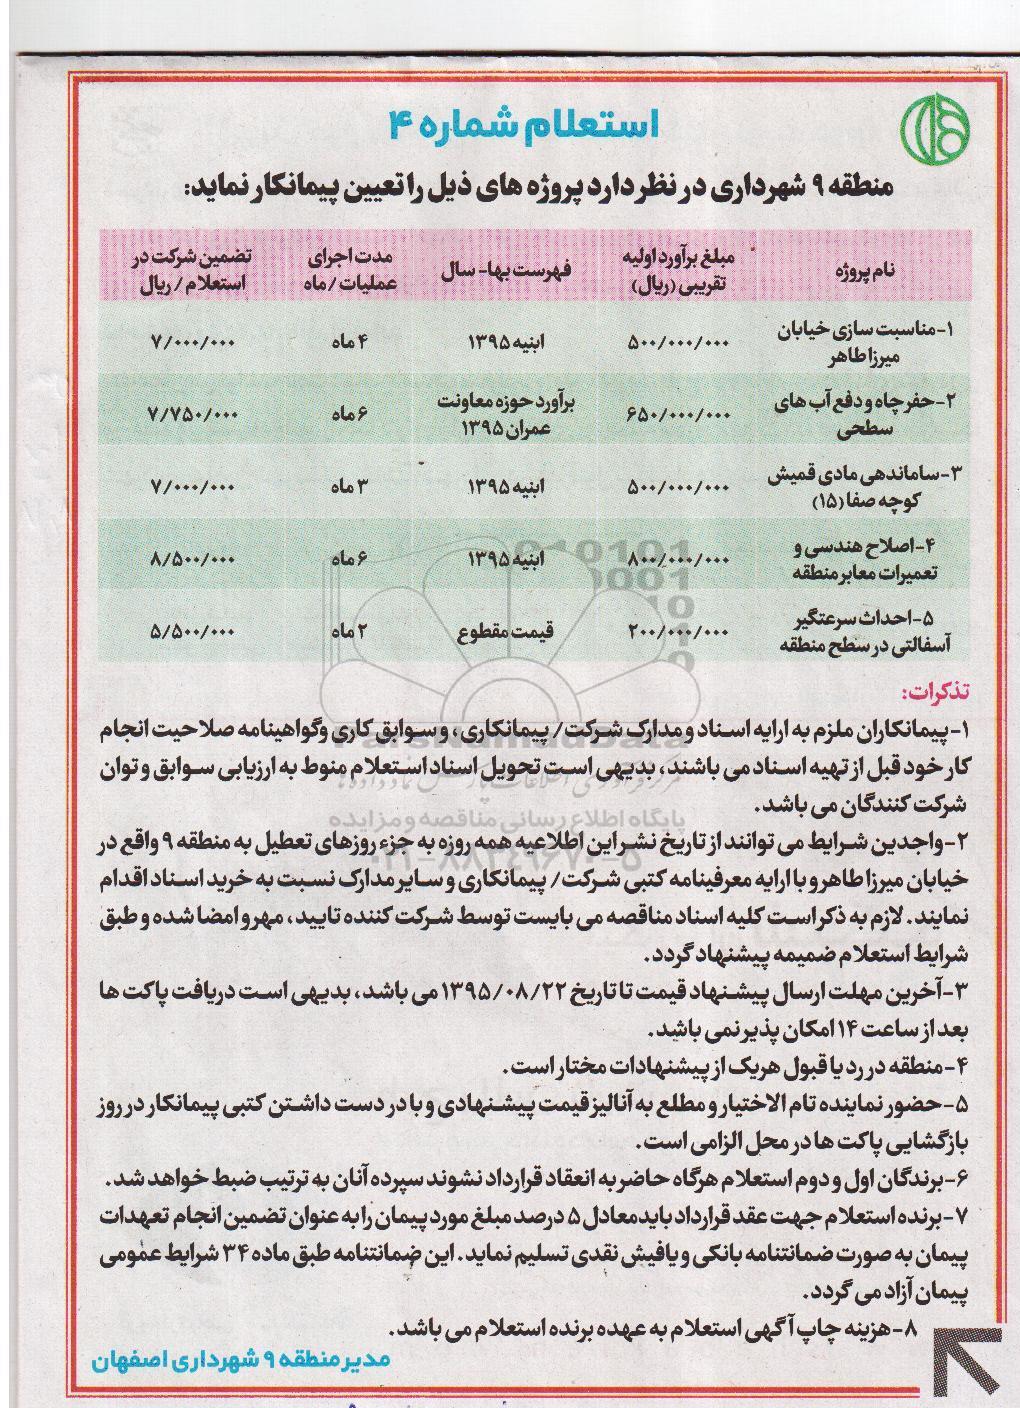 استعلام شماره ۴
منطقه ۹ شهرداری در نظر دارد پروژه های ذیل را تعیین پیمانکار نماید:
نام پروژه
مبلغ برآورد اولیه
تقریبی (ریال)
فهرست بها- سال
مدت اجرای
عملیات / ماه
تضمین شرکت در
استعلام / ریال
۱-مناسبت سازی خیابان
میرزا طاهر
۵۰۰/۰۰۰/۰۰۰
ابنیه ۱۳۹۵
۴ ماه
۷/۰۰۰/۰۰۰
۲-حفر چاه و دفع آب های
سطحی
۶۵۰/۰۰۰/۰۰۰
برآورد حوزه معاونت
عمران ۱۳۹۵
۶ ماه
۷/۷۵۰/۰۰۰
۳-ساماندهی مادی قمیش
کوچه صفا (۱۵)
۵۰۰/۰۰۰/۰۰۰
ابنیه ۱۳۹۵
۳ ماه
۷/۰۰۰/۰۰۰
۴-اصلاح هندسی و
تعمیرات معابر منطقه
۸۰۰/۰۰۰/۰۰۰
ابنیه ۱۳۹۵
۶ ماه
۸/۵۰۰/۰۰۰
۵-احداث سرعتگیر
آسفالتی در سطح منطقه
۲۰۰/۰۰۰/۰۰۰
قیمت مقطوع
۲ ماه
۵/۵۰۰/۰۰۰
تذکرات:
۱-پیمانکاران ملزم به ارایه اسناد و مدارک شرکت/ پیمانکاری، و سوابق کاری وگواهینامه صلاحیت انجام
کار خود قبل از تهیه اسناد می باشند، بدیهی است تحویل اسناد استعلام منوط به ارزیابی سوابق و توان
شرکت کنندگان می باشد.
۲-واجدین شرایط می توانند از تاریخ نشر این اطلاعیه همه روزه به جزء روزهای تعطیل به منطقه ۹ واقع در
خیابان میرزا طاهر و با ارایه معرفینامه کتبی شرکت/ پیمانکاری و سایر مدارک نسبت به خرید اسناد اقدام
نمایند. لازم به ذکر است کلیه اسناد مناقصه می بایست توسط شرکت کننده تایید، مهر و امضا شده و طبق
شرایط استعلام ضمیمه پیشنهاد گردد.
۳-آخرین مهلت ارسال پیشنهاد قیمت تا تاریخ ۱۳۹۵/۰۸/۲۲ می باشد، بدیهی است دریافت پاکت ها
بعد از ساعت ۱۴ امکان پذیر نمی باشد.
۴-منطقه در رد یا قبول هریک از پیشنهادات مختار است.
۵-حضور نماینده تام الاختیار و مطلع به آنالیز قیمت پیشنهادی و با در دست داشتن کتبی پیمانکار در روز
بازگشایی پاکت ها در محل الزامی است.
۶-برندگان اول و دوم استعلام هرگاه حاضر به انعقاد قرارداد نشوند سپرده آنان به ترتیب ضبط خواهد شد.
۷-برنده استعلام جهت عقد قرارداد باید معادل ۵ درصد مبلغ مورد پیمان را به عنوان تضمین انجام تعهدات
پیمان به صورت ضمانتنامه بانکی و یا فیش نقدی تسلیم نماید. این ضمانتنامه طبق ماده ۳۴ شرایط عمومی
پیمان آزاد می گردد.
۸-هزینه چاپ آگهی استعلام به عهده برنده استعلام می باشد.
مدیر منطقه ۹ شهرداری اصفهان
ParsNamadData
پایگاه اطلاع رسانی مناقصه و مزایده